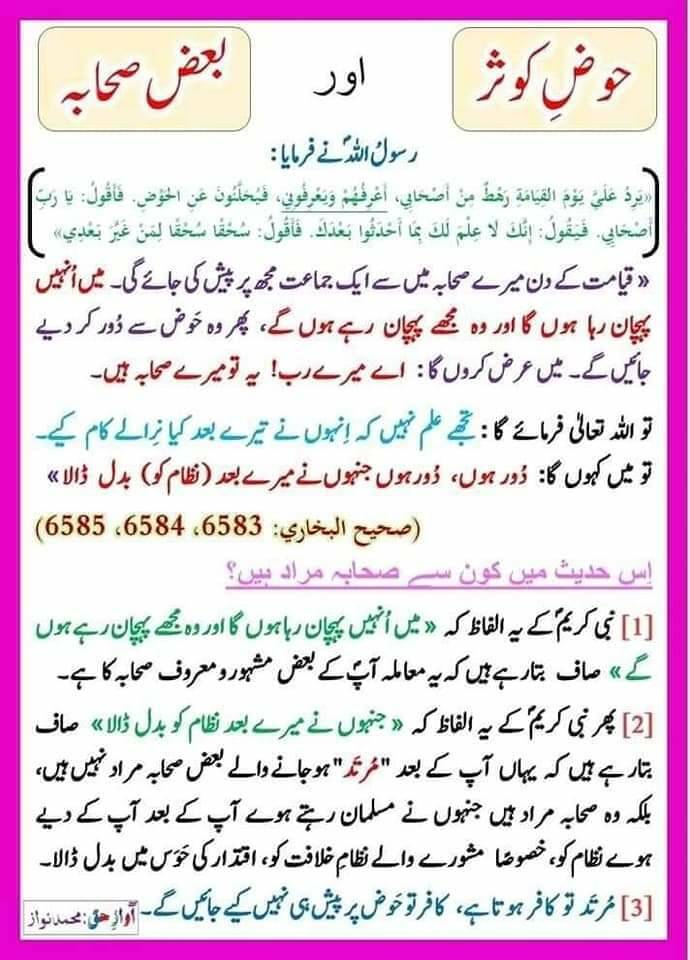 حوضِ کوثر
اور
بعض صحابہ
رسولُ اللہؐ نے فرمایا:
«يَرِدُ عَلَيَّ يَوْمَ القِيَامَةِ رَهْطٌ مِنْ أَصْحَابِي، أَعْرِفُهُمْ وَيَعْرِفُونِي، فَيُحَلَّئُونَ عَنِ الحَوْضِ. فَأَقُولُ: يَا رَبِّ
أَصْحَابِي. فَيَقُولُ: إِنَّكَ لاَ عِلْمَ لَكَ بِمَا أَحْدَثُوا بَعْدَكَ. فَأَقُولُ: سُحْقًا سُحْقًا لِمَنْ غَيَّرَ بَعْدِي»
« قیامت کے دن میرے صحابہ میں سے ایک جماعت مجھ پر پیش کی جائے گی۔ میں اُنہیں
پہچان رہا ہوں گا اور وہ مجھے پہچان رہے ہوں گے، پھر وہ حَوض سے دُور کر دیے
جائیں گے۔ میں عرض کروں گا: اے میرے رب! یہ تو میرے صحابہ ہیں۔
تو اللہ تعالیٰ فرمائے گا: تجھے علم نہیں کہ اِنہوں نے تیرے بعد کیا نِرالے کام کیے۔
تو میں کہوں گا: دُور ہوں، دُور ہوں جنہوں نے میرے بعد (نظام کو) بدل ڈالا»
(صحيح البخاري: 6583، 6584، 6585)
اِس حدیث میں کون سے صحابہ مراد ہیں؟
[1] نبی کریمؐ کے یہ الفاظ کہ «میں اُنہیں پہچان رہا ہوں گا اور وہ مجھے پہچان رہے ہوں
گے» صاف بتا رہے ہیں کہ یہ معاملہ آپؐ کے بعض مشہور و معروف صحابہ کا ہے۔
[2] پھر نبی کریمؐ کے یہ الفاظ کہ «جنہوں نے میرے بعد نظام کو بدل ڈالا» صاف
بتا رہے ہیں کہ یہاں آپ کے بعد "مُرتَد" ہو جانے والے بعض صحابہ مراد نہیں ہیں،
بلکہ وہ صحابہ مراد ہیں جنہوں نے مسلمان رہتے ہوے آپ کے بعد آپ کے دیے
ہوے نظام کو، خصوصًا مشورے والے نظامِ خلافت کو، اقتدار کی حَوَس میں بدل ڈالا۔
[3] مُرتَد تو کافر ہوتا ہے، کافر تو حَوض پر پیش ہی نہیں کیے جائیں گے۔
آوازِ حق: محمد نواز